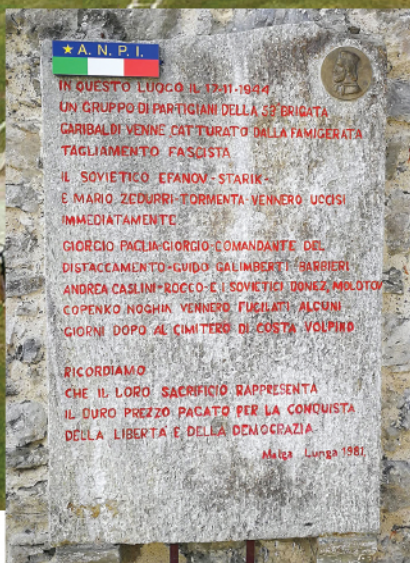 ★ A. N. P. I.
IN QUESTO LUOGO IL 17-11-1944
UN GRUPPO DI PARTIGIANI DELLA 53ª BRIGATA
GARIBALDI VENNE CATTURATO DALLA FAMIGERATA
TAGLIAMENTO FASCISTA
IL SOVIETICO EFANOV-STARIK-
E MARIO ZEDURRI-TORMENTA-VENNERO UCCISI
IMMEDIATAMENTE
GIORGIO PAGLIA-GIORGIO-COMANDANTE DEL
DISTACCAMENTO-GUIDO GALIMBERTI-BARBIERI
ANDREA CASLINI-ROCCO-E I SOVIETICI DONEZ, MOLOTOV
COPENKO NOGHIN VENNERO FUCILATI ALCUNI
GIORNI DOPO AL CIMITERO DI COSTA VOLPINO
RICORDIAMO
CHE IL LORO SACRIFICIO RAPPRESENTA
IL DURO PREZZO PAGATO PER LA CONQUISTA
DELLA LIBERTÀ E DELLA DEMOCRAZIA
Malga Lunga 1981